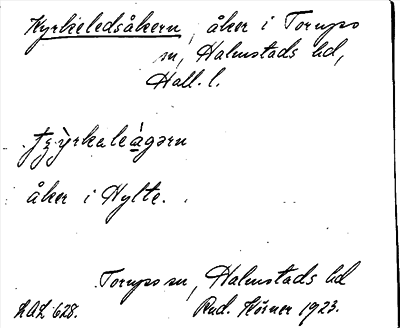 Kyrkeledsåkern, åker i Torups
sn, Halmstads hd,
Hall. l.
åker i Hylte.
Torups sn, Halmstads hd
LAL 628. Rud. 1923.